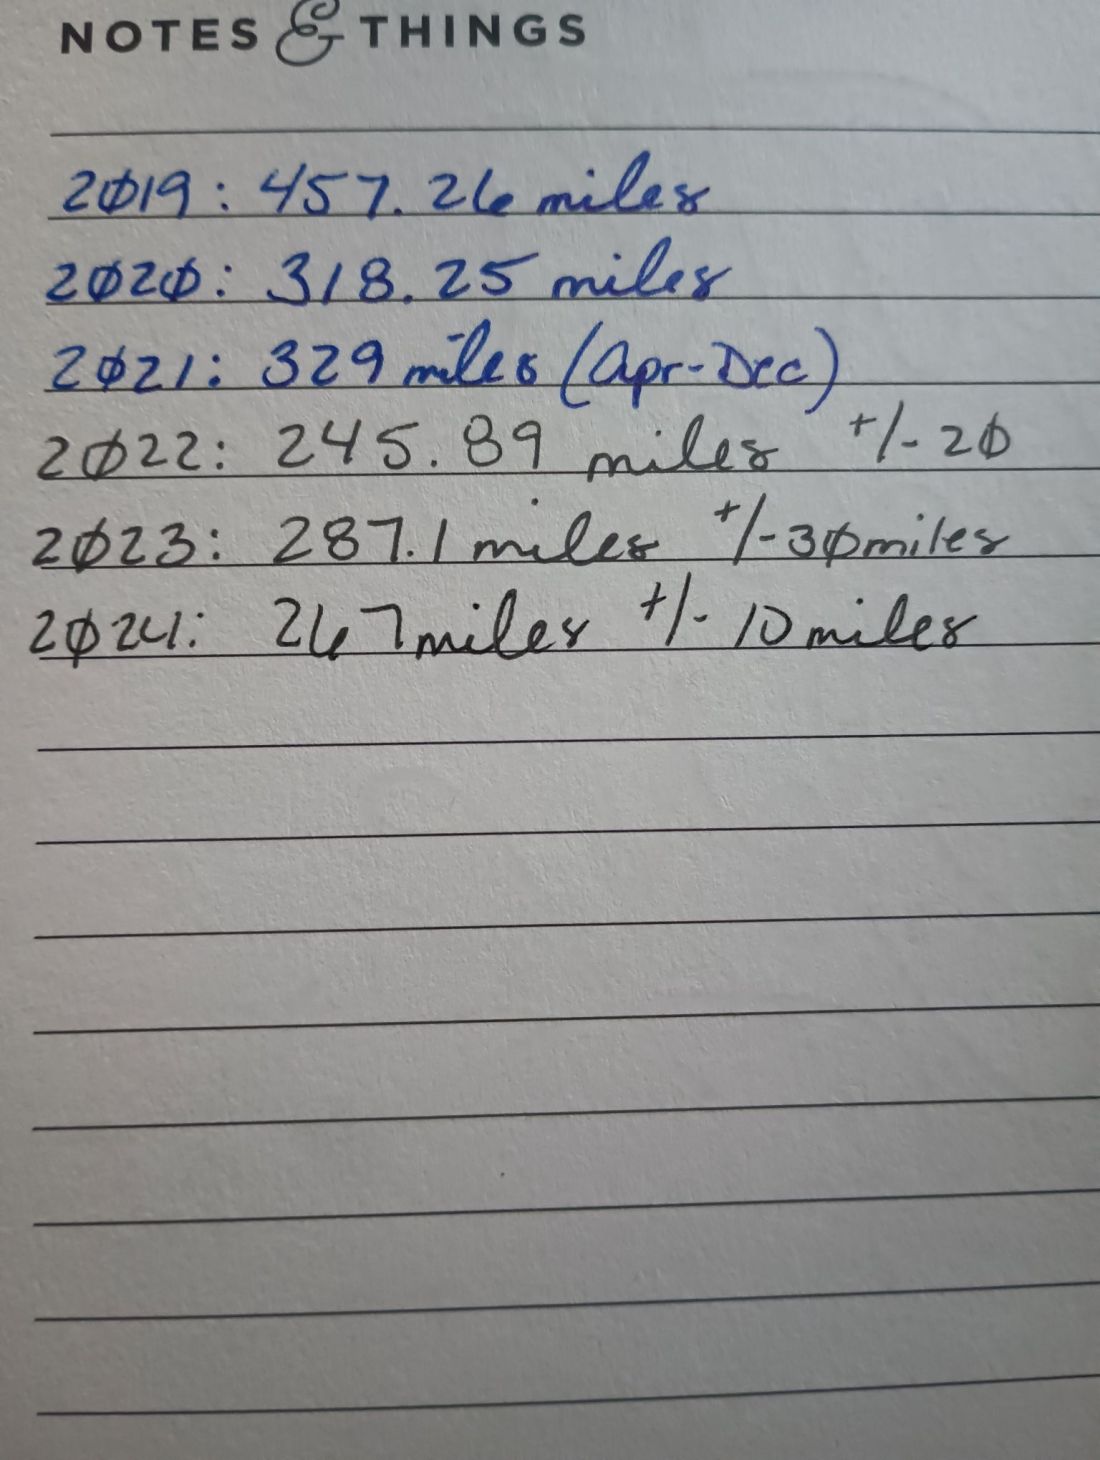 NOTES & THINGS
2019: 457.26 miles
2020: 318.25 miles
2021: 329 miles (Apr-Dec)
2022: 245.89 miles +/- 20
2023: 287.1 miles +/- 30 miles
2024: 267 miles +/- 10 miles